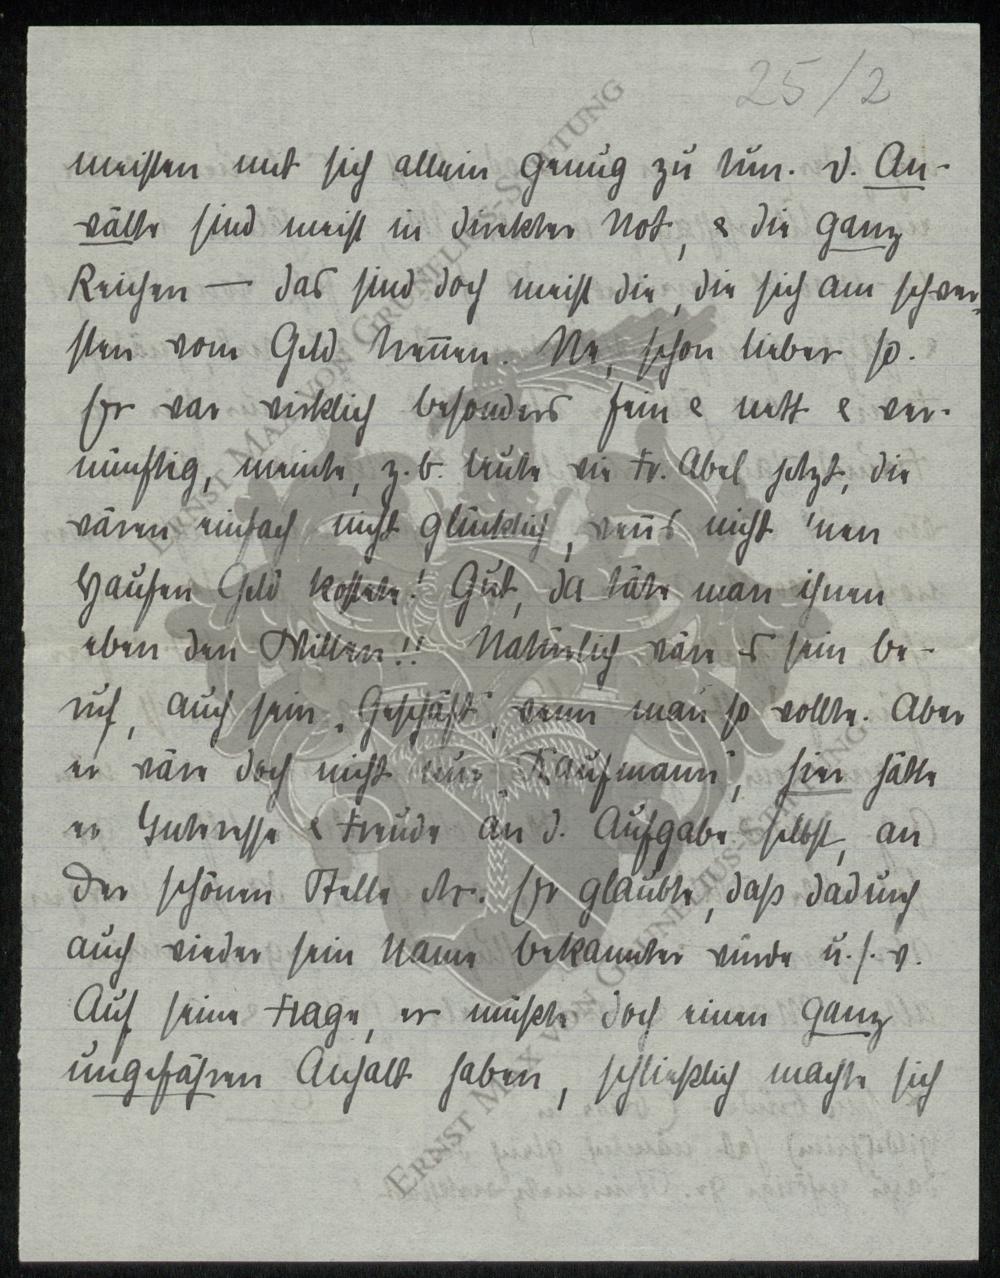 25/2
meisten mit sich allein genug zu tun. d. An-
wälte sind meist in direkter Not, & die ganz
Reichen — das sind doch meist die, die sich am schwer-
sten vom Geld trennen. Ne, schon lieber so.
Er war wirklich besonders fein & nett & ver-
nünftig, meinte, z.b. Leute wie Fr. Abel jetzt, die
wären einfach nicht glücklich, wenns nicht 'nen
Haufen Geld kostete! Gut, da täte man ihnen
eben den Willen!! Natürlich wäre es sein Be-
ruf, auch sein „Geschäft", wenn man so wollte. Aber
er wäre doch nicht nur „Kaufmann", hier hätte
er Interesse & Freude an d. Aufgabe selbst, an
der schönen Stelle etc. Er glaubte, daß dadurch
auch wieder sein Name bekannter würde u.s.w.
Auf seine Frage, er müßte doch einen ganz
ungefähren Anhalt haben, schließlich machte sich
Ernst Max von Grunelius-Stiftung
Ernst Max von Grunelius-Stiftung